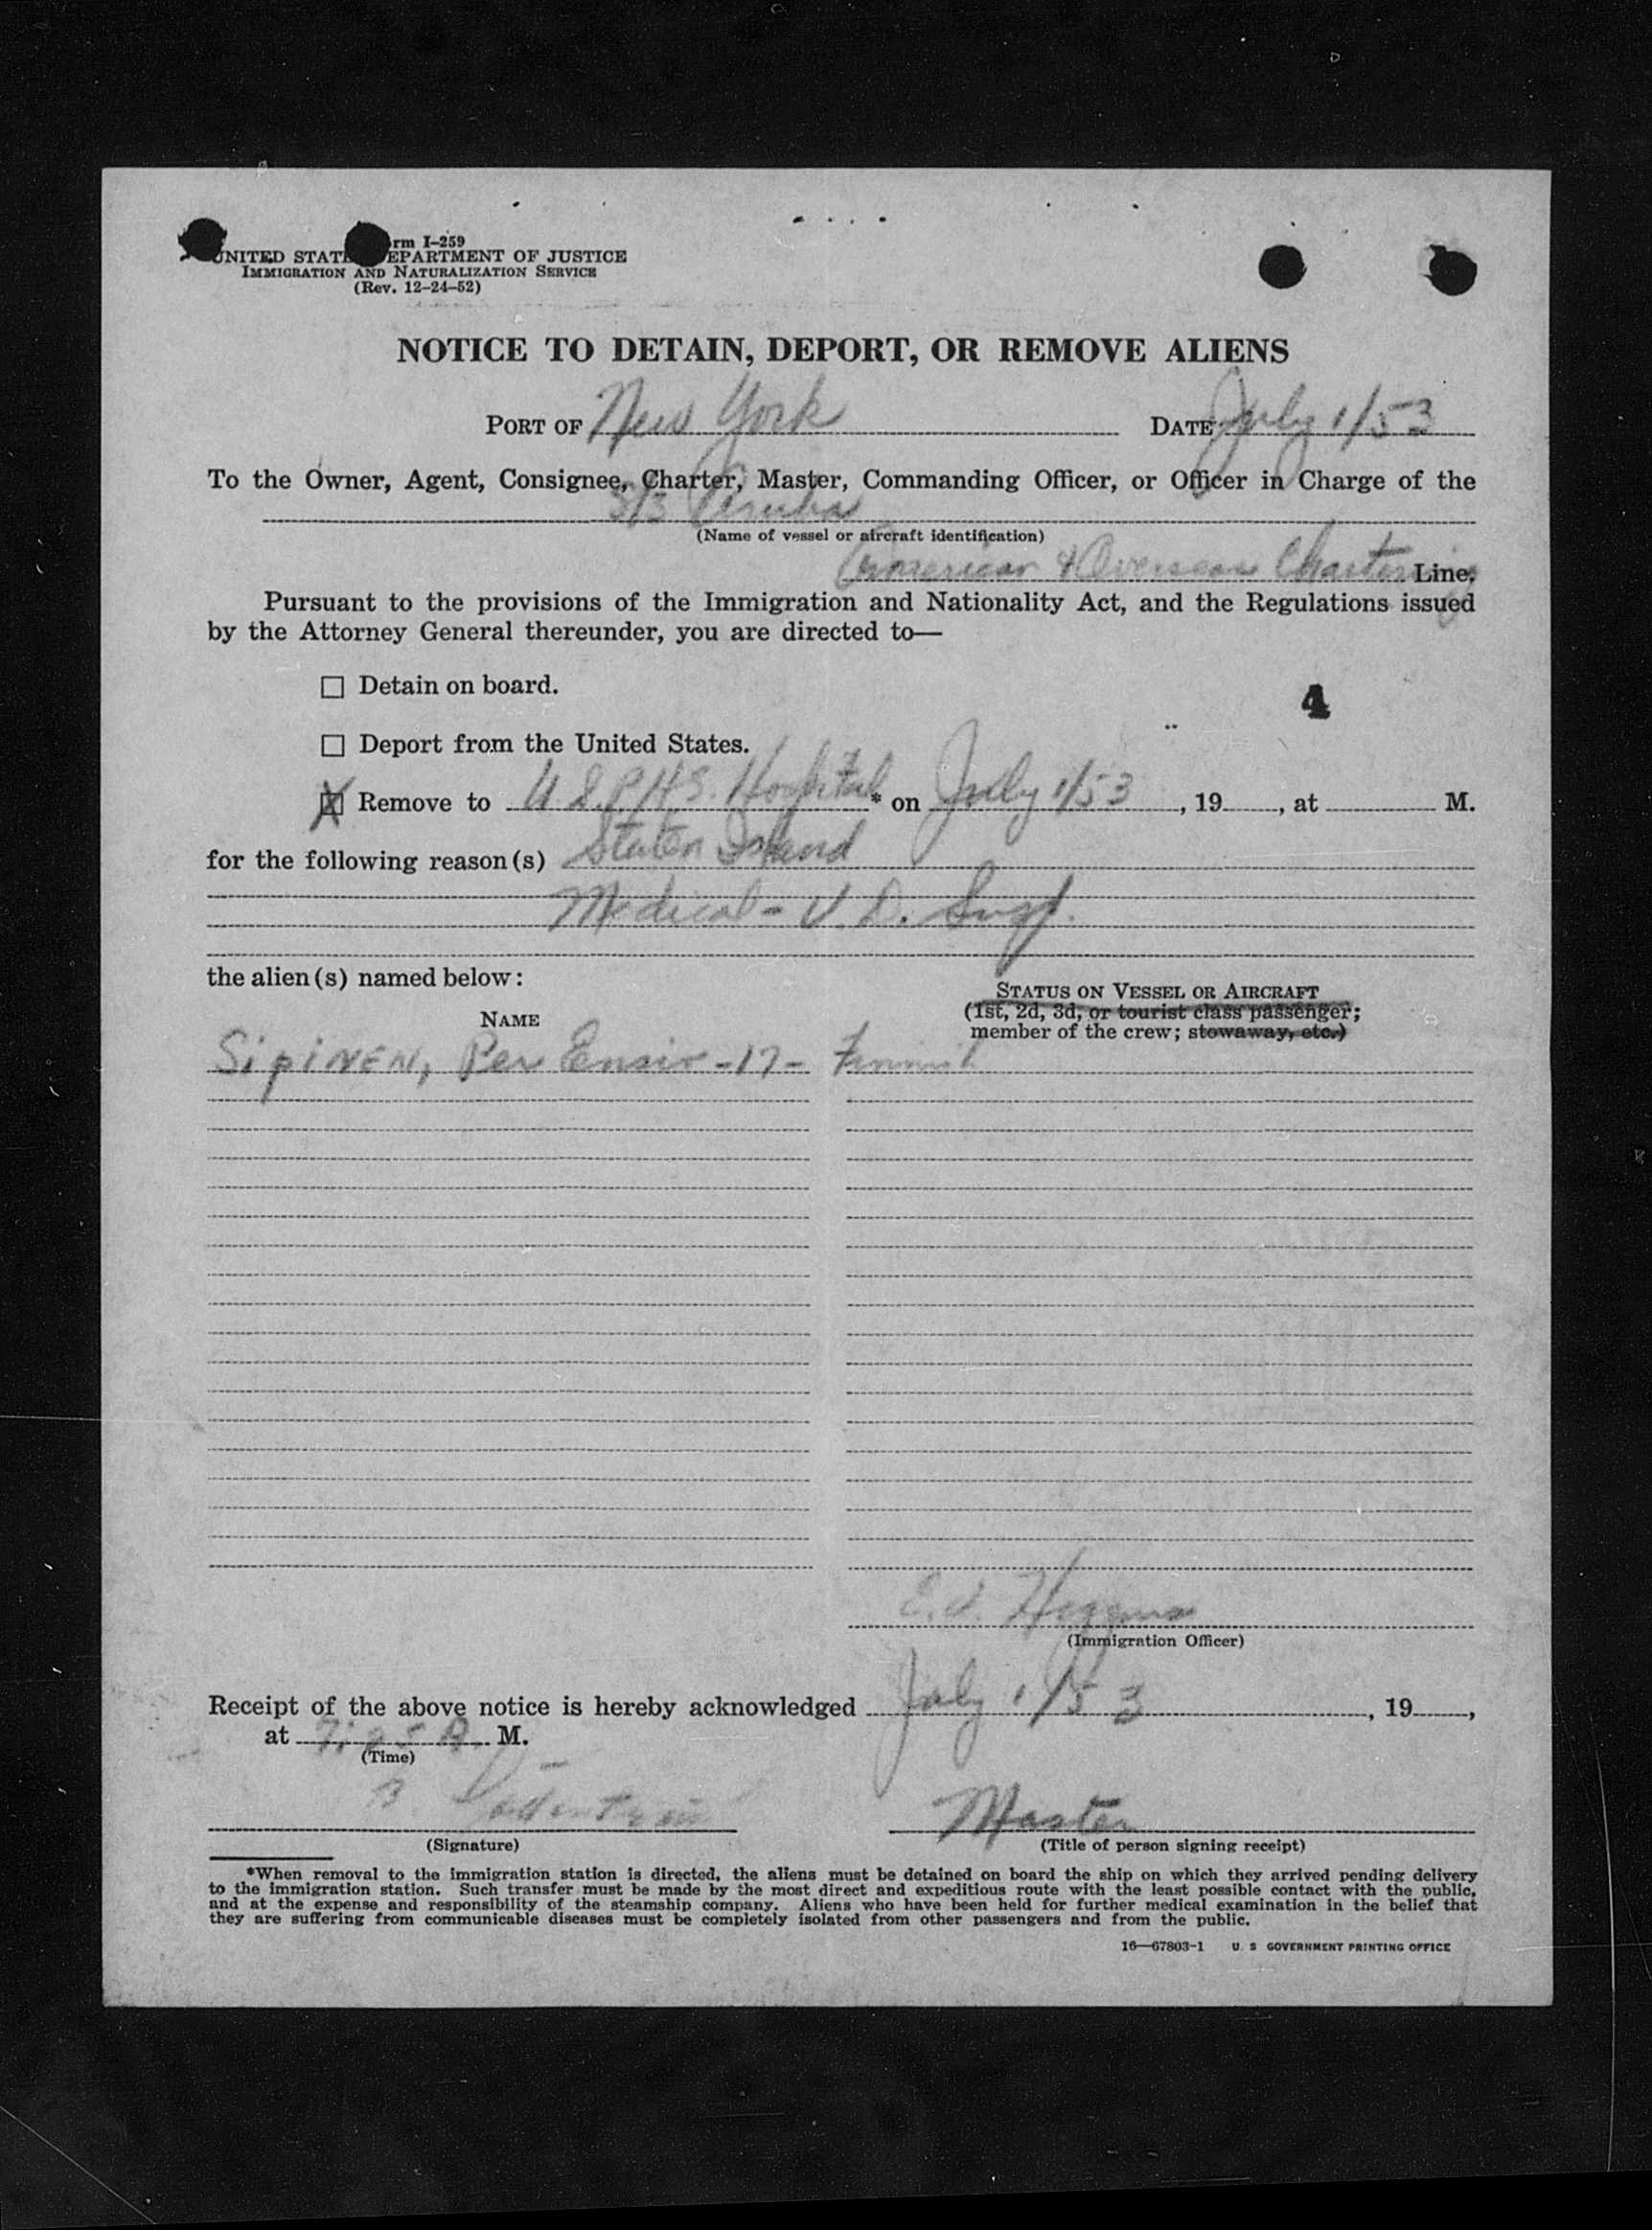 Form I-259
UNITED STATES DEPARTMENT OF JUSTICE
IMMIGRATION AND NATURALIZATION SERVICE
(Rev. 12-24-52)
NOTICE TO DETAIN, DEPORT, OR REMOVE ALIENS
PORT OF New York DATE July 1/53
To the Owner, Agent, Consignee, Charter, Master, Commanding Officer, or Officer in Charge of the
S/S
(Name of vessel or aircraft identification)
American & Overseas Chartering Line.
Pursuant to the provisions of the Immigration and Nationality Act, and the Regulations issued
by the Attorney General thereunder, you are directed to—
☐ Detain on board.
4
☐ Deport from the United States.
☒ Remove to U.S.P.H.S. Hospital * on July 1/53, 19____, at ____ M.
Staten Island
for the following reason(s)
Medical - V.D. Susp.
the alien(s) named below:
STATUS ON VESSEL OR AIRCRAFT
NAME (1st, 2d, 3d, or tourist class passenger;
member of the crew; stowaway, etc.)
SipiNEN, Per -17- Finnish
(Immigration Officer)
Receipt of the above notice is hereby acknowledged July 1/53, 19____,
at A. M.
(Time)
Master
(Signature) (Title of person signing receipt)
*When removal to the immigration station is directed, the aliens must be detained on board the ship on which they arrived pending delivery
to the immigration station. Such transfer must be made by the most direct and expeditious route with the least possible contact with the public,
and at the expense and responsibility of the steamship company. Aliens who have been held for further medical examination in the belief that
they are suffering from communicable diseases must be completely isolated from other passengers and from the public.
16—67803-1 U. S. GOVERNMENT PRINTING OFFICE